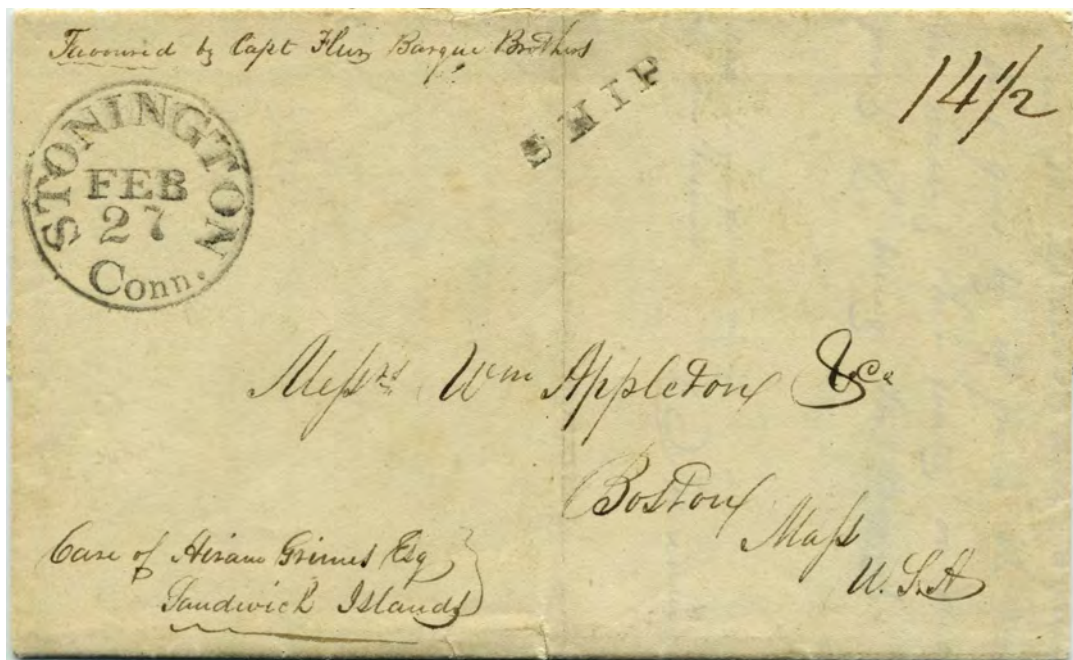 Favoured by Capt Flury Barque Brothers
SHIP
14 1/2
STONINGTON
FEB
27
Conn.
Messrs Wm Appleton & Co
Boston
Mass
U.S.A
Care of Hiram Grimes Esq
Sandwich Islands